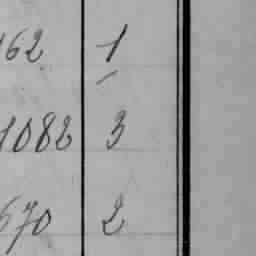 162 1
1082 3
670 2